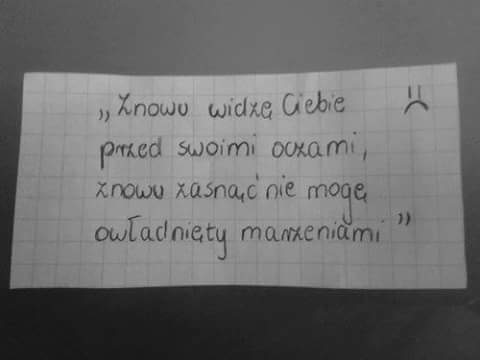 „Znowu widzę Ciebie
przed swoimi oczami,
znowu zasnąć nie mogę
owładnięty marzeniami”